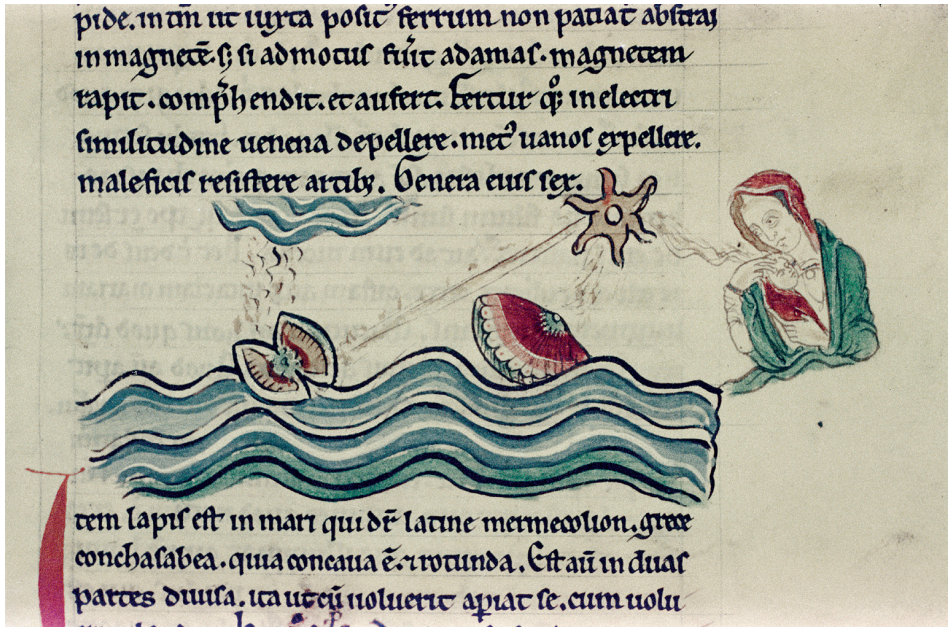 pide. in tm̄ ut iuxta posit' ferrum non patiat abstrai
in magnetē. sʒ si admotus fuīt adamas. magnetem
rapit. comp̄hendit. et aufert. Fertur qͦʒ in electri
similitudine uenena depellere. met' uanos expellere.
maleficis resistere artibʒ. Genera eius sex.
Item lapis est in mari qui dr̄ latine mermecolion. grece
conchasabea. quia concaua ē. ⁊ rotunda. Est aū in duas
partes diuisa. ita ut cū uoluerit apiat se. cum uolu